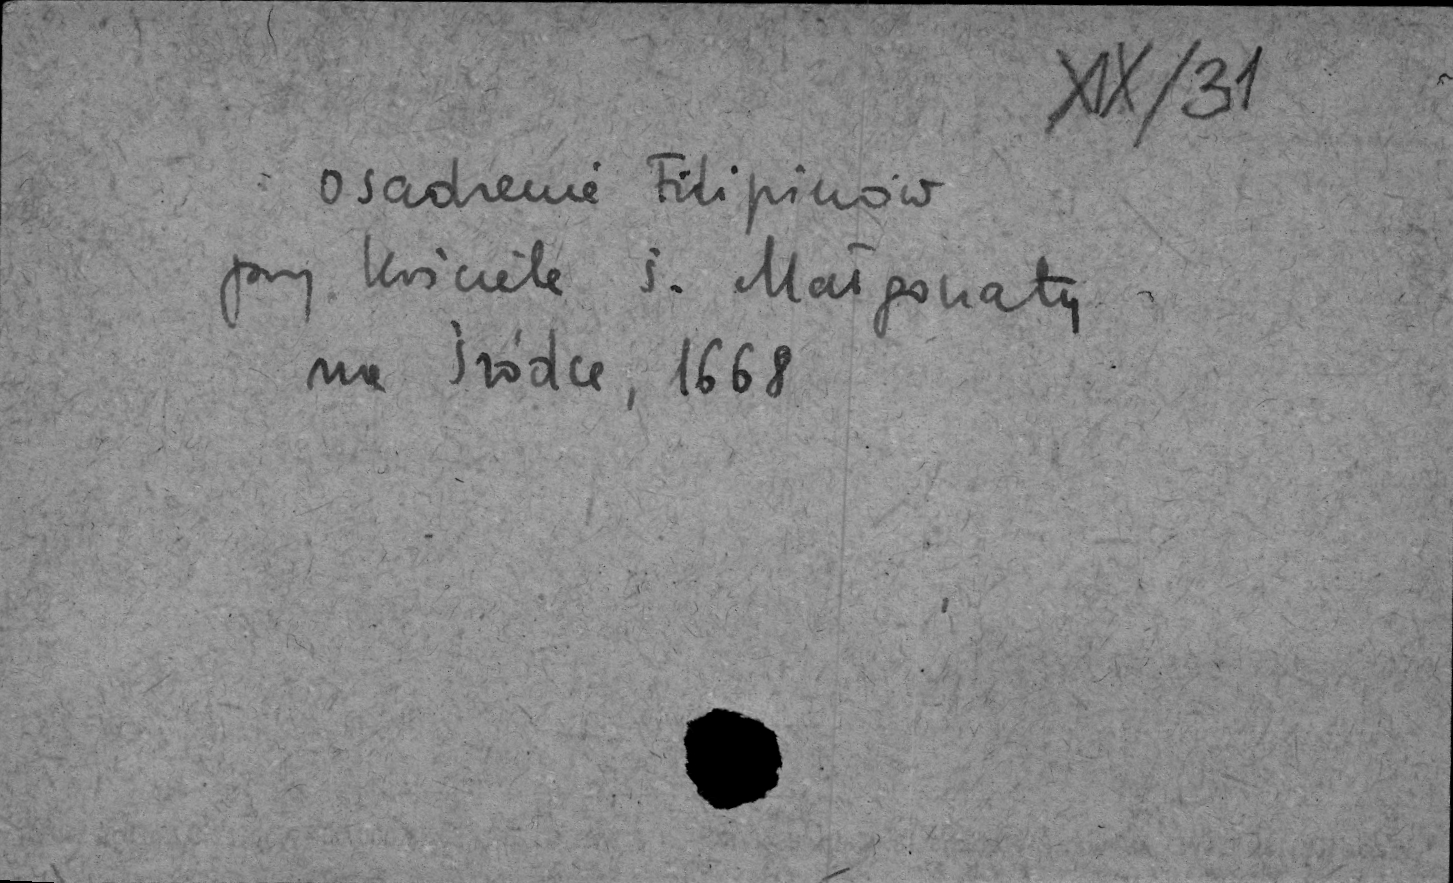 XIX/31
osadzenie Filipinów
przy kościele ś. Małgorzaty
na Śródce, 1668